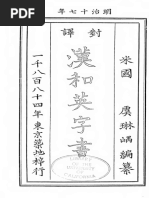 年七十治明
米國 虞琳嵎編纂
釘譯
漢和英字書
一千八百八十四年東京築地梓行